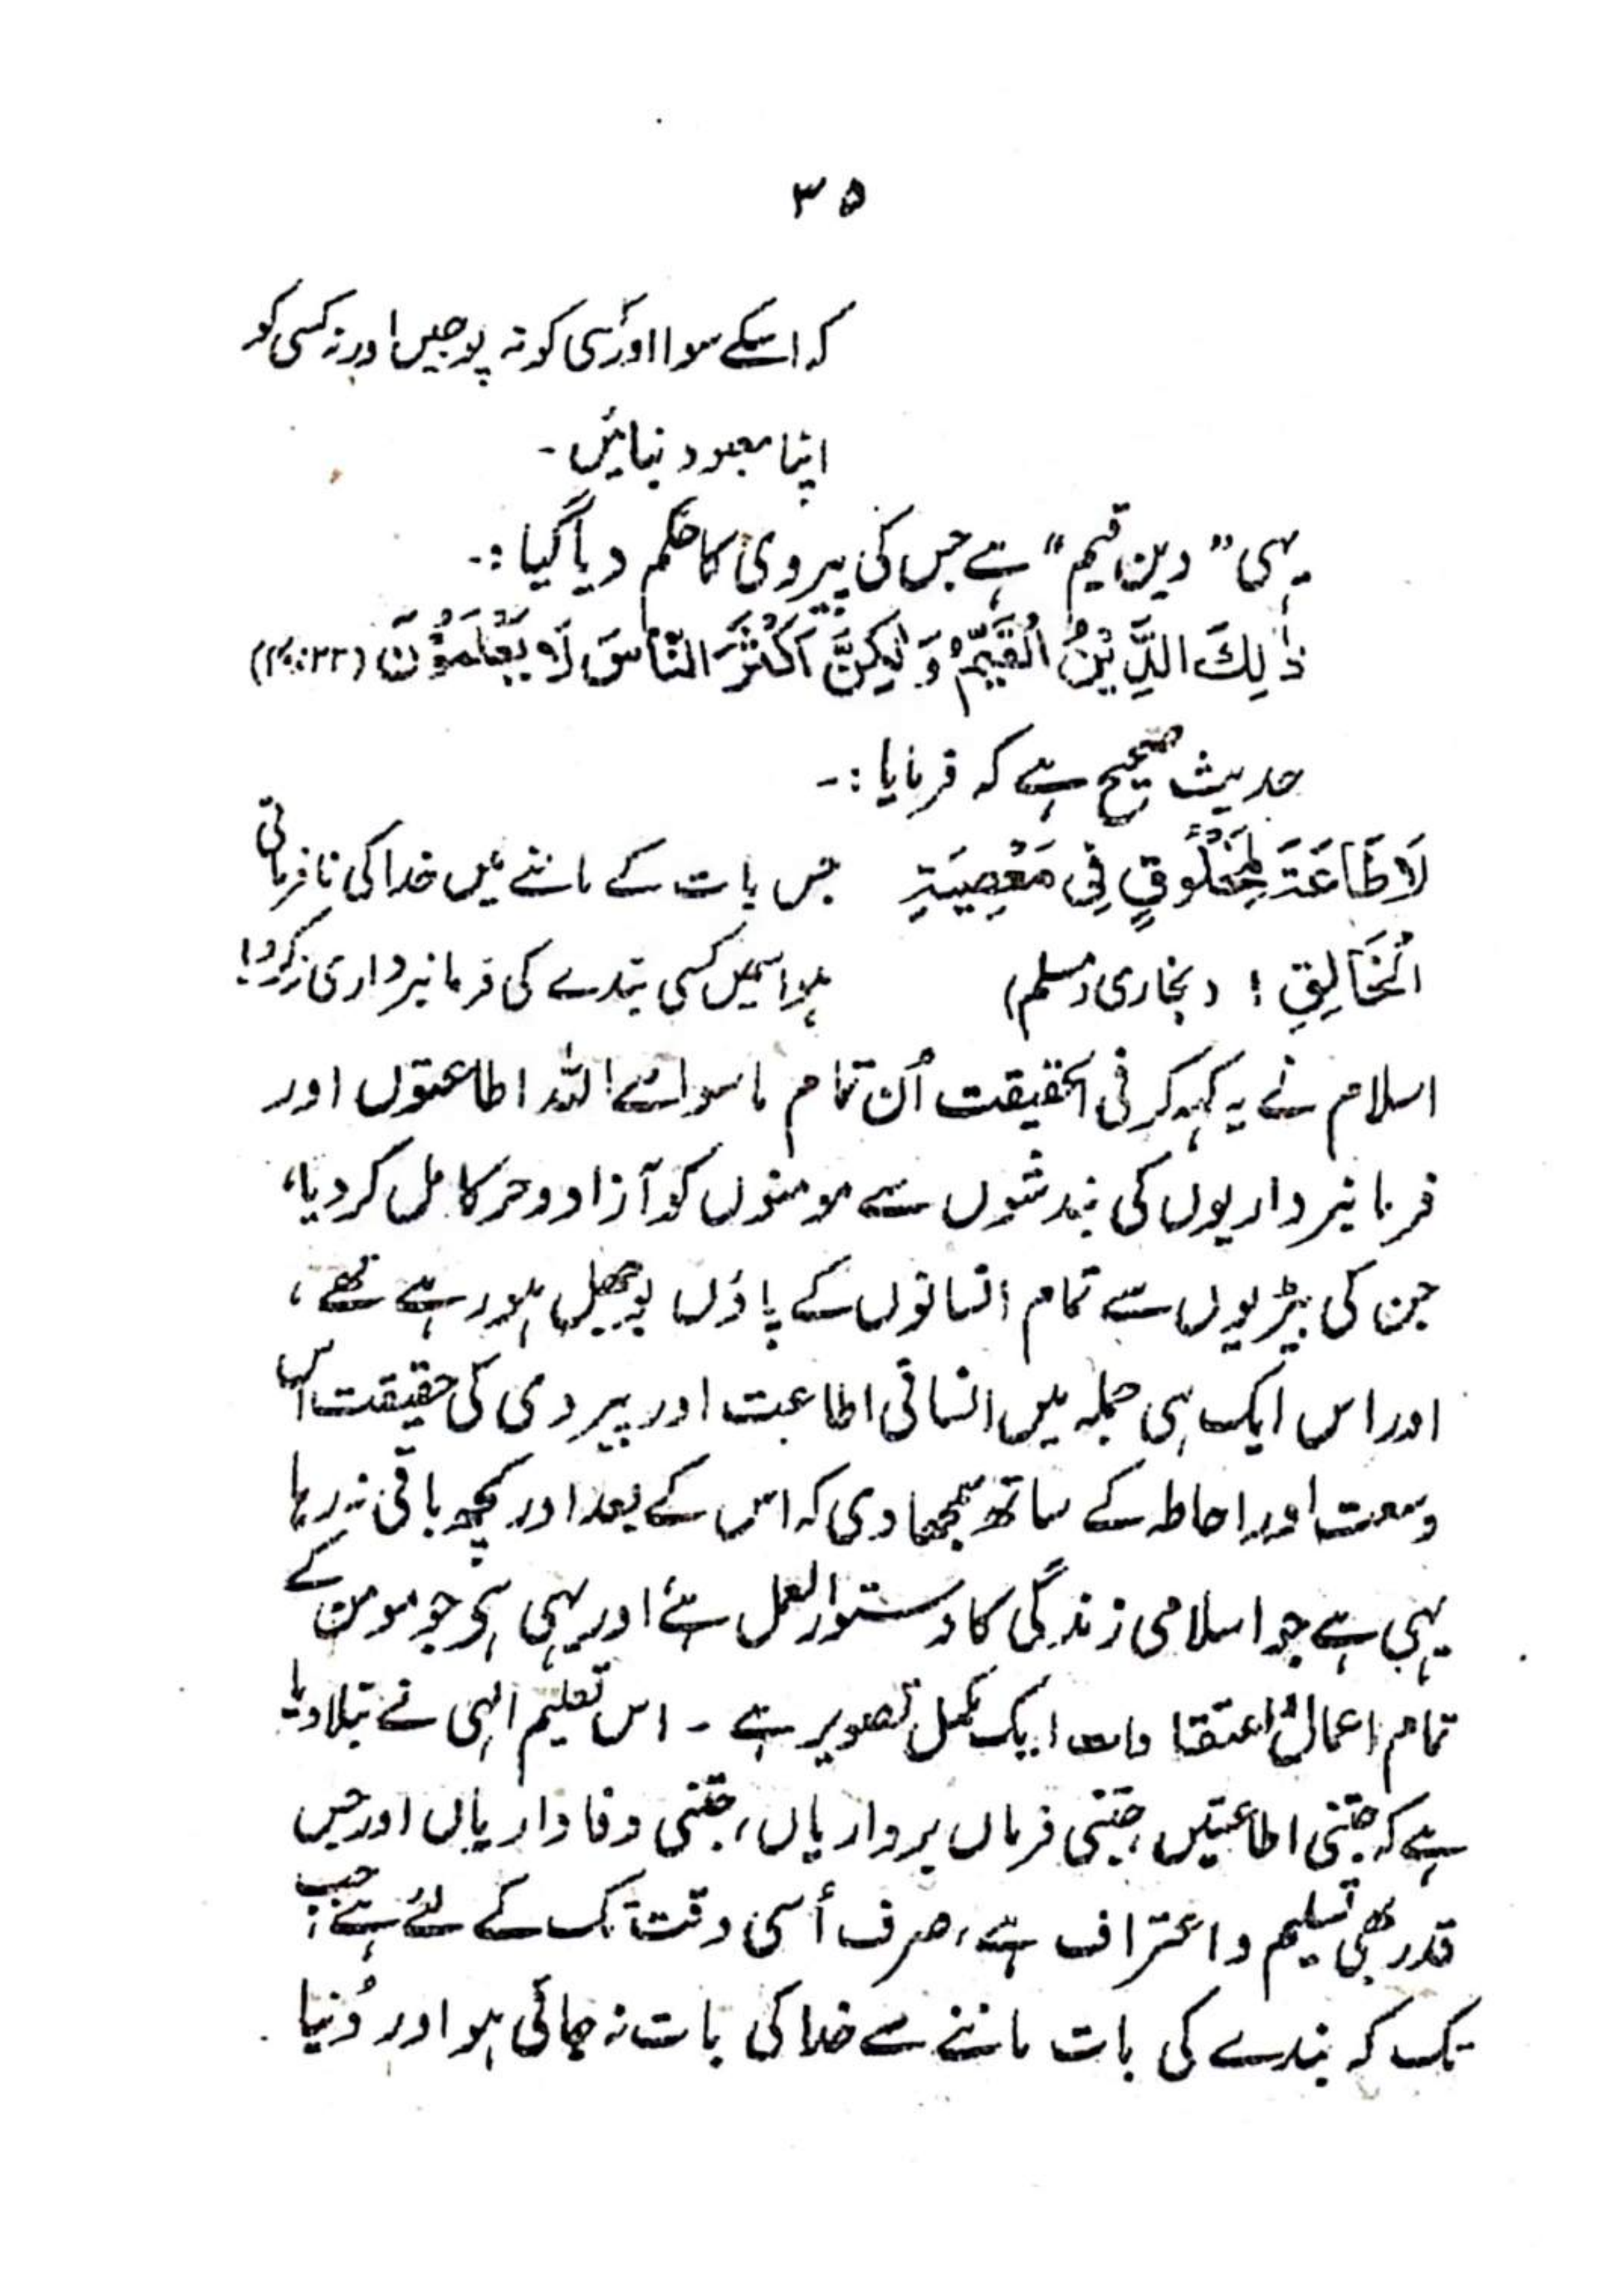 ۳۵
کہ اسکے سوا اور کسی کو نہ پوجیں اور نہ کسی کو
اپنا معبود بنائیں -
یہی "دین قیم" ہے جس کی پیروی کا حکم دیا گیا :-
ذٰلِكَ الدِّيْنُ الْقَيِّمُ وَلٰكِنَّ اَكْثَرَ النَّاسِ لَا يَعْلَمُوْنَ
حدیث صحیح ہے کہ فرمایا :-
لَا طَاعَةَ لِمَخْلُوْقٍ فِى مَعْصِيَةِ جس بات کے ماننے میں خدا کی نافرمانی
الْخَالِقِ ! (بخاری و مسلم) ہو اسمیں کسی بندے کی فرمانبرداری نہ کرو!
اسلام نے یہ کہہ کر فی الحقیقت اُن تمام ماسوائے اللہ اطاعتوں اور
فرمانبرداریوں کی بندشوں سے مومنوں کو آزاد و حر کامل کر دیا،
جن کی بیڑیوں سے تمام انسانوں کے پاؤں بوجھل ہو رہے تھے ،
اور اس ایک ہی جملہ میں انسانی اطاعت اور پیروی کی حقیقت اس
وسعت اور احاطہ کے ساتھ سمجھا دی کہ اس کے بعد اور کچھ باقی نہ رہا
یہی ہے جو اسلامی زندگی کا دستور العمل ہے اور یہی ہی جو مومن کے
تمام اعمال و اعتقادات ایک مکمل تصویر ہے - اس تعلیم الٰہی نے بتلا دیا
ہے کہ جتنی اطاعتیں، جتنی فرماں برداریاں، جتنی وفاداریاں اور جس
قدر بھی تسلیم و اعتراف ہے، صرف اُسی وقت تک کے لئے ہے، جب
تک کہ بندے کی بات ماننے سے خدا کی بات نہ جاتی ہو اور دُنیا